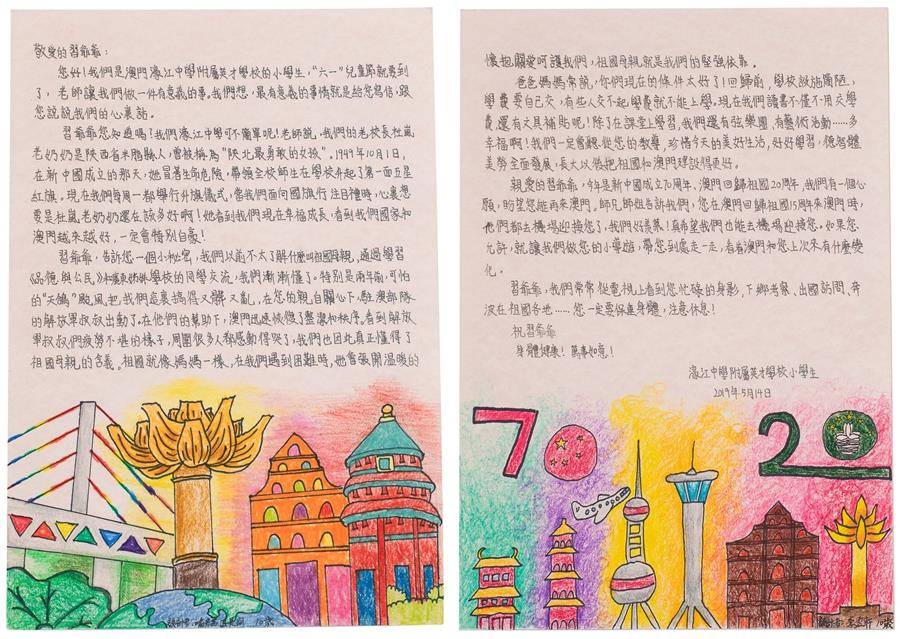 敬愛的習爺爺：
您好！我們是澳門濠江中學附屬英才學校的小學生，“六一”兒童節就要到
了，老師讓我們做一件有意義的事。我們想，最有意義的事情就是給您寫信，跟
您說說我們的心裏話。
習爺爺您知道嗎！我們濠江中學可不簡單呢！老師說，我們的老校長杜嵐
老奶奶是陝西省米脂縣人，曾被稱為“陝北最勇敢的女孩”。1949年10月1日，
在新中國成立的那天，她冒著生命危險，帶領全校師生在學校升起了第一面五星
紅旗。現在我們每周一都舉行升旗儀式，當我們面向國旗行注目禮時，心裏想
要是杜嵐老奶奶還在該多好啊！她看到我們現在幸福成長，看到我們國家和
澳門越來越好，一定會特別自豪！
習爺爺，告訴您一個小秘密，我們以前不太了解什麼叫祖國母親，通過學習
《品德與公民》和學校的同學交流，我們漸漸懂了。特別是兩年前，可怕
的“天鴿”颱風把我們這裏搞得又髒又亂，在您的親自關心下，駐澳部隊
的解放軍叔叔出動了。在他們的幫助下，澳門迅速恢復了整潔和秩序。看到解放
軍叔叔們疲勞不堪的樣子，周圍很多人都感動得哭了，我們也因此真正懂得了
祖國母親的含義。祖國就像媽媽一樣，在我們遇到困難時，她會張開溫暖的
懷抱關愛呵護我們，祖國母親就是我們的堅強依靠。
爸爸媽媽常說，你們現在的條件太好了！回歸前，學校設施簡陋，
學費要自己交，有些人交不起學費就不能上學。現在我們讀書不僅不用交學
費，還有文具補貼呢！除了在課堂上學習，我們還有弦樂團，有藝術活動……多
幸福啊！我們一定會聽從您的教導，珍惜今天的美好生活，好好學習，德智體
美勞全面發展，長大以後把祖國和澳門建設得更好。
親愛的習爺爺，今年是新中國成立70周年、澳門回歸祖國20周年，我們有一個心
願，盼望您能再來澳門。師兄師姐告訴我們，您在澳門回歸祖國15周年來澳門時，
他們都去機場迎接您了，我們好羨慕！真希望我們也能去機場迎接您。如果您
允許，就讓我們做您的小導遊，帶您到處走一走，看看澳門和您上次來有什麼變
化。
習爺爺，我們常常從電視上看到您忙碌的身影，下鄉考察、出國訪問、奔
波在祖國各地……您一定要保重身體，注意休息！
祝習爺爺
身體健康！萬事如意！
濠江中學附屬英才學校小學生
2019年5月14日
70 20
10歲
10歲